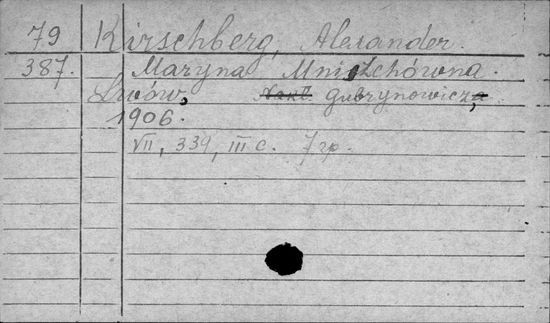 79 Kirschberg, Alexander.
387. Maryna Mniszchówna.
Lwów, Nakł. Gubrynowicza,
1906.
VII, 339, III c. 7 гр.